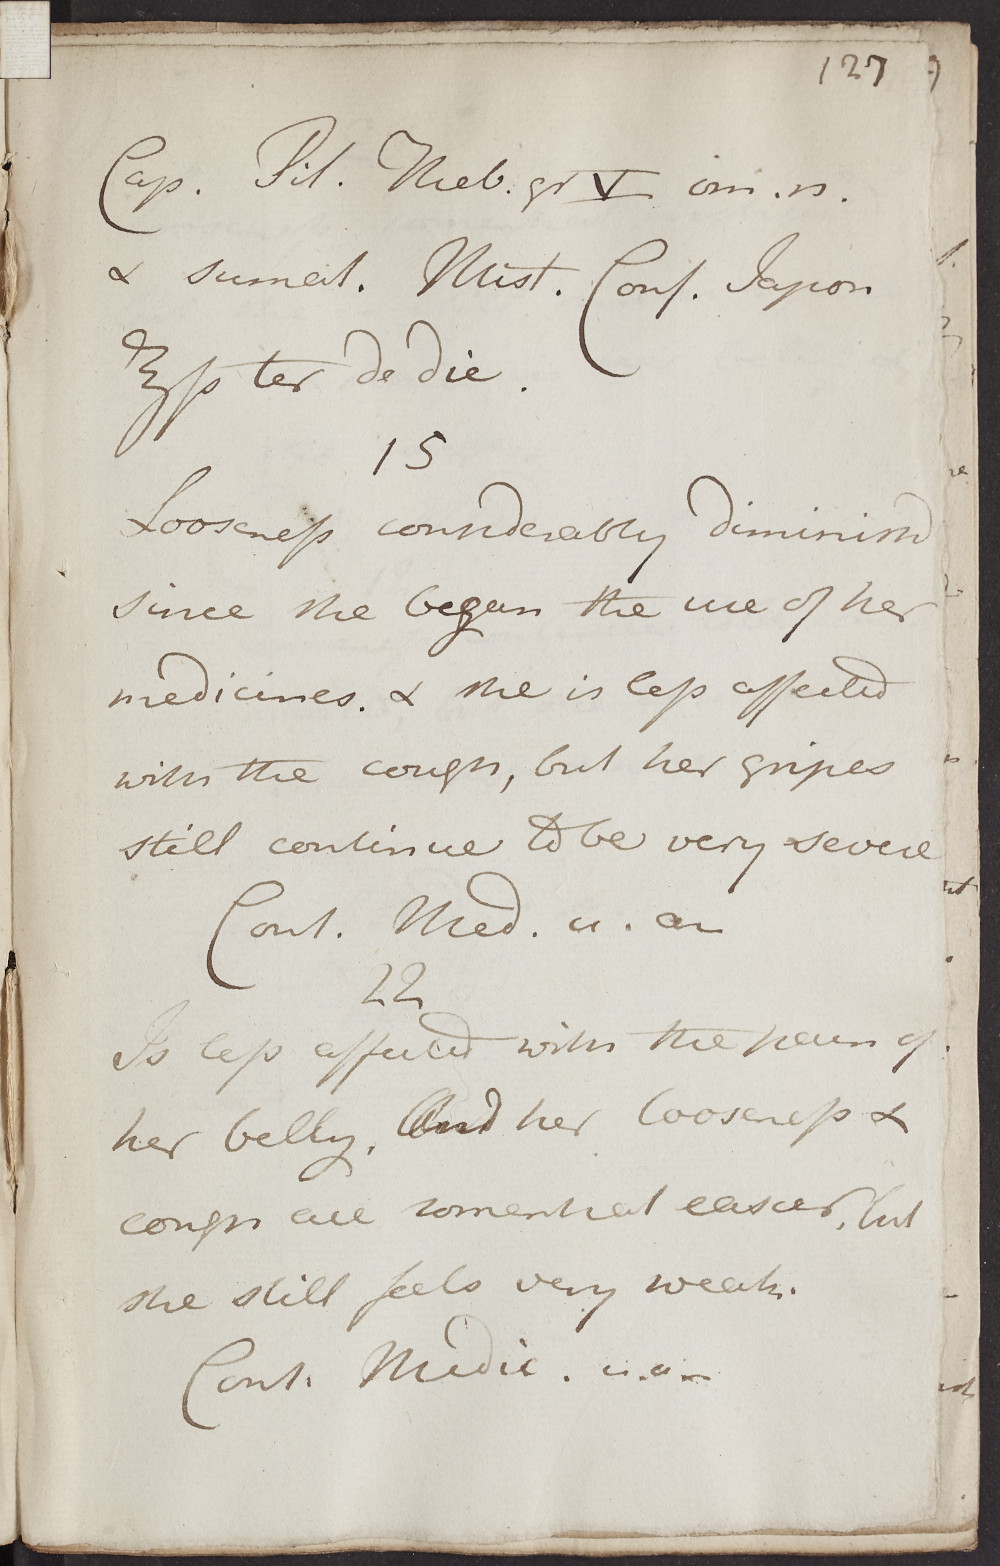 127
Cap. Pil. Theb. gr V om. n.
& sumat. Mist. Conf. Japon
℥ſs ter de die.
15
Looseneſs considerably diminishd
since she began the use of her
medicines. & she is leſs affected
with the cough, but her gripes
still continue to be very severe
Cont. Med. u. an
22
Is leſs affected with the pain of
her belly, And her looseneſs &
cough are somewhat easier, but
she still feels very weak.
Cont. Medic. u. an